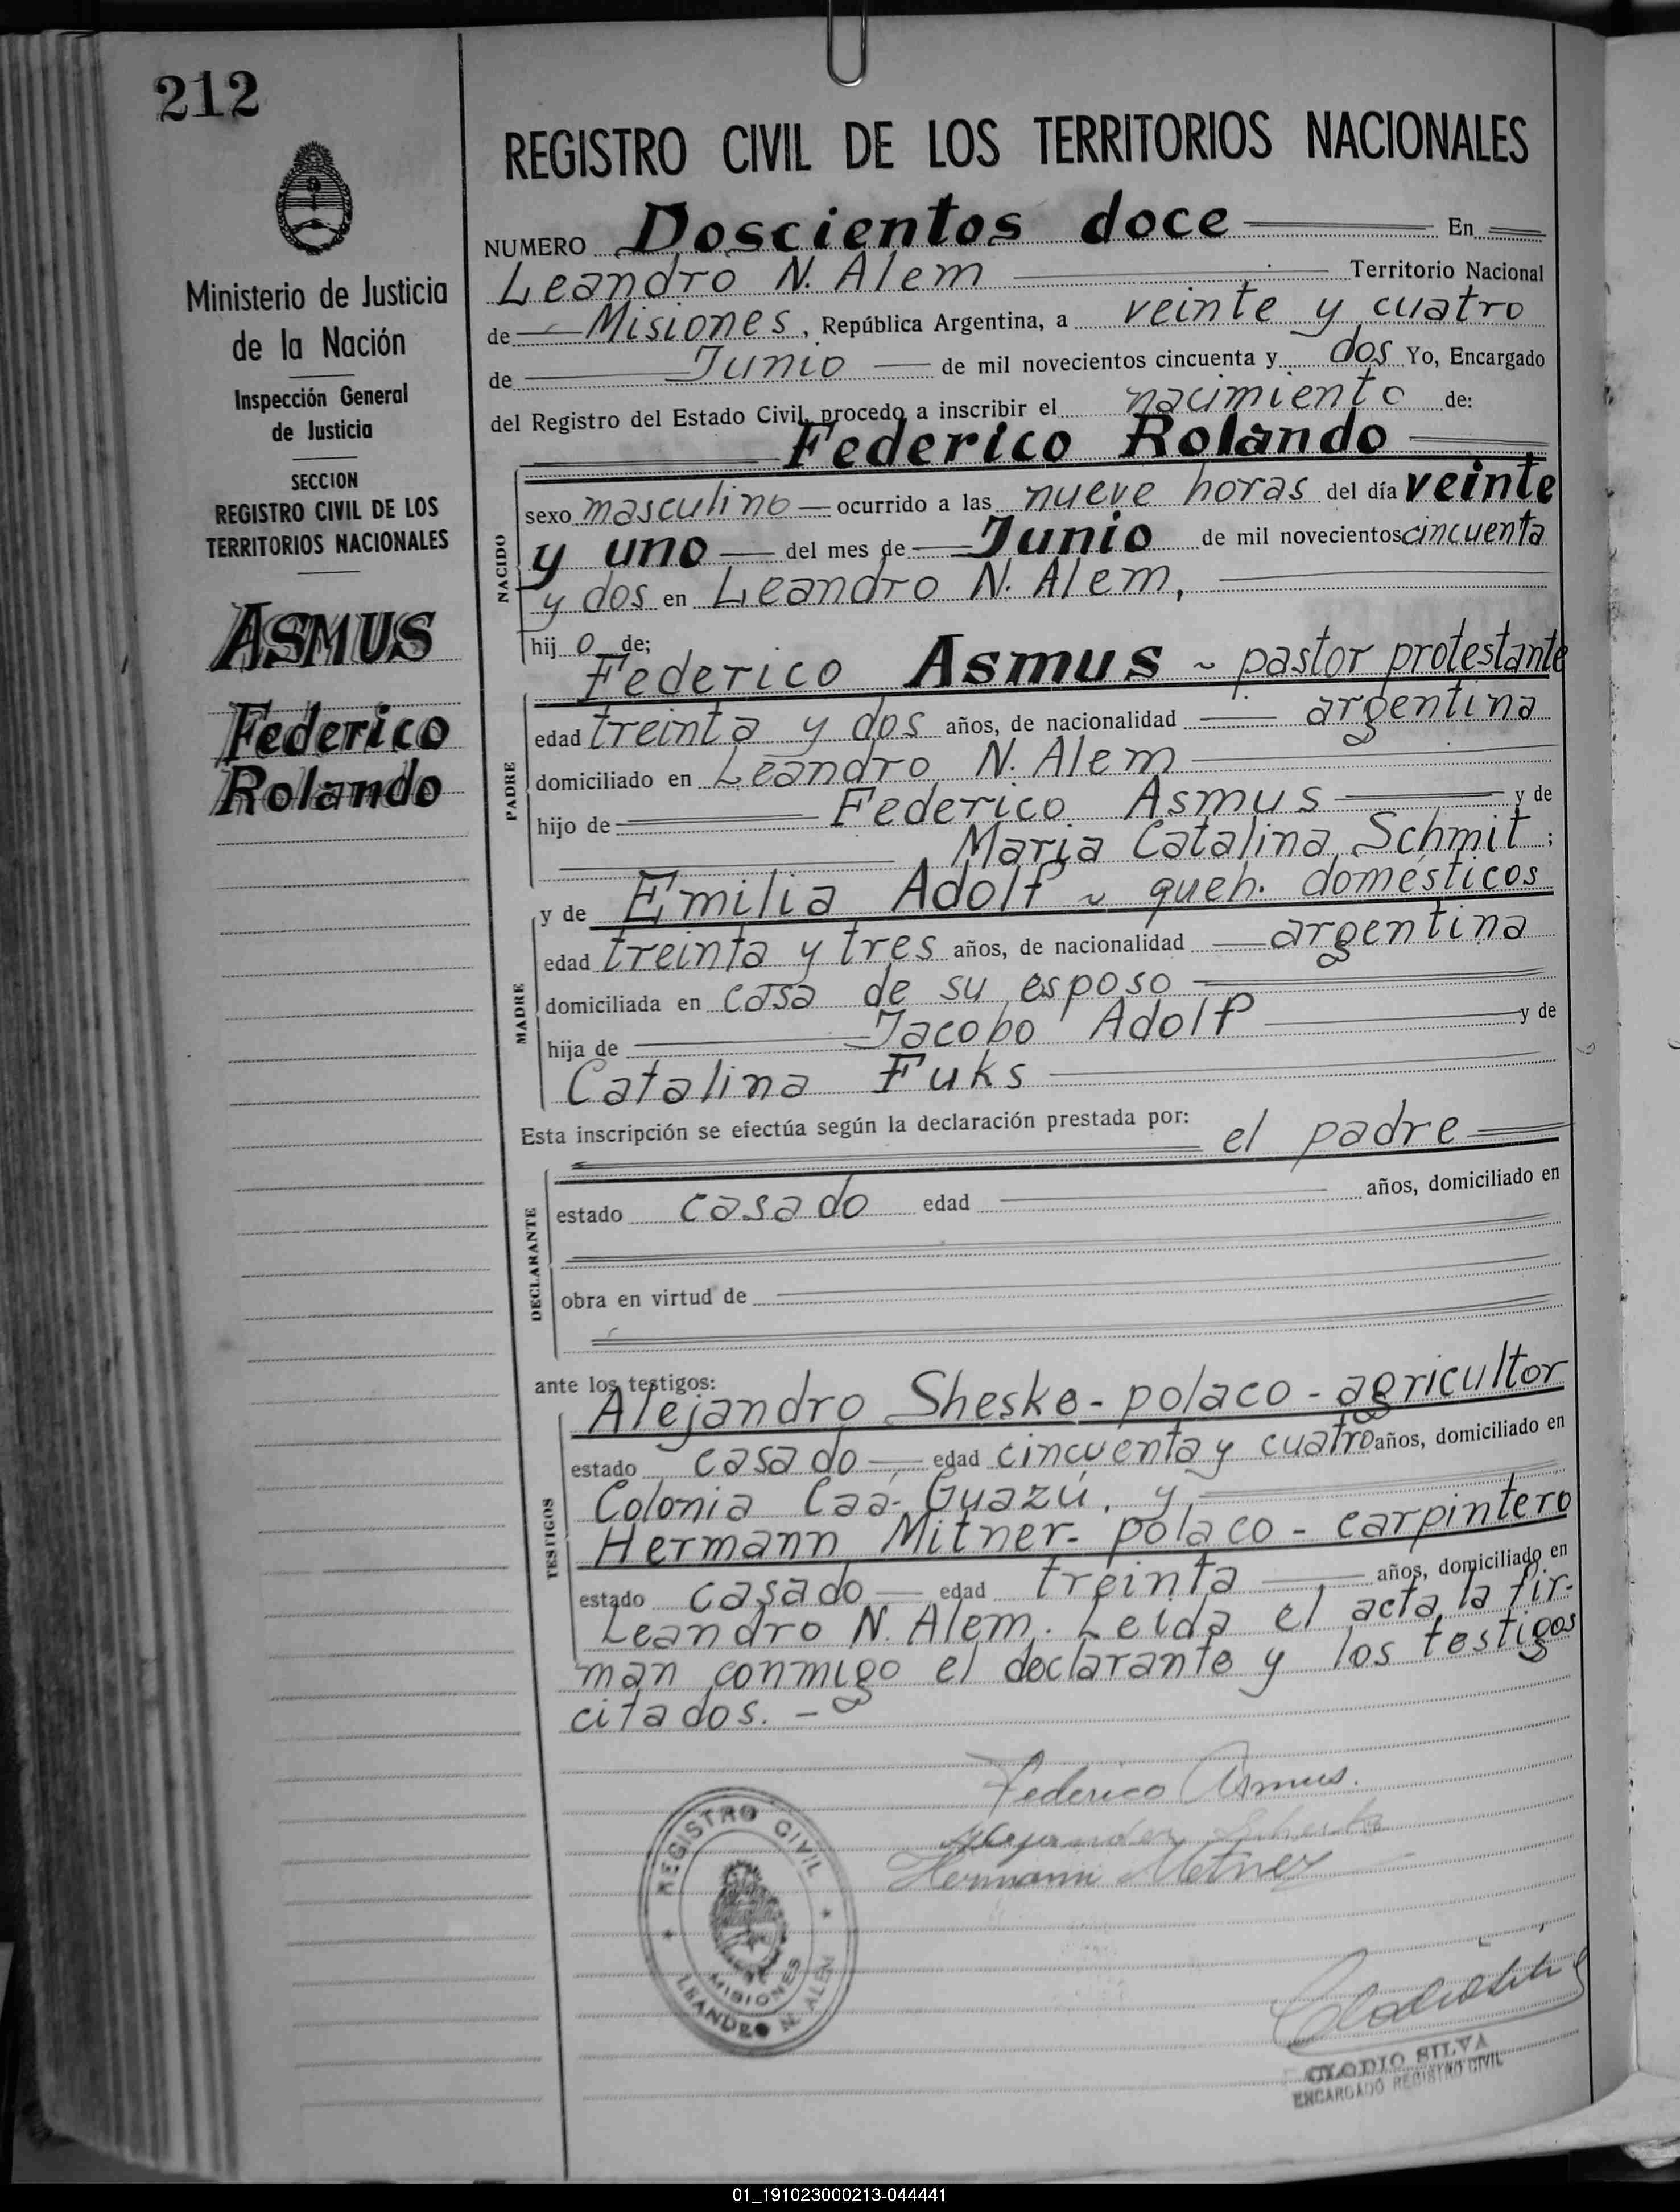 212
Ministerio de Justicia
de la Nación
Inspección General
de Justicia
SECCION
REGISTRO CIVIL DE LOS
TERRITORIOS NACIONALES
ASMUS
Federico
Rolando
REGISTRO CIVIL DE LOS TERRITORIOS NACIONALES
NUMERO Doscientos doce En
Leandro N. Alem Territorio Nacional
de Misiones, República Argentina, a veinte y cuatro
de Junio de mil novecientos cincuenta y dos Yo, Encargado
del Registro del Estado Civil, procedo a inscribir el nacimiento de:
Federico Rolando
NACIDO
sexo masculino ocurrido a las nueve horas del día veinte
y uno del mes de Junio de mil novecientos cincuenta
y dos en Leandro N. Alem,
hij o de;
Federico Asmus ~ pastor protestante
PADRE
edad treinta y dos años, de nacionalidad argentina
domiciliado en Leandro N. Alem
hijo de Federico Asmus y de
Maria Catalina Schmit;
y de Emilia Adolf ~ queh. domésticos
MADRE
edad treinta y tres años, de nacionalidad argentina
domiciliada en casa de su esposo
hija de Jacobo Adolf y de
Catalina Fuks
Esta inscripción se efectúa según la declaración prestada por:
el padre
DECLARANTE
estado casado edad años, domiciliado en
obra en virtud de
ante los testigos:
Alejandro Sheske - polaco - agricultor
TESTIGOS
estado casado edad cincuenta y cuatro años, domiciliado en
Colonia Caá-Guazú, y
Hermann Mitner - polaco - carpintero
estado casado edad treinta años, domiciliado en
Leandro N. Alem. Leida el acta, la fir-
man conmigo el declarante y los testigos
citados. -
Federico Asmus.
Hermann Metner
REGISTRO CIVIL
MISIONES
LEANDRO N. ALEM
CLODIO SILVA
ENCARGADO REGISTRO CIVIL
01_191023000213-044441